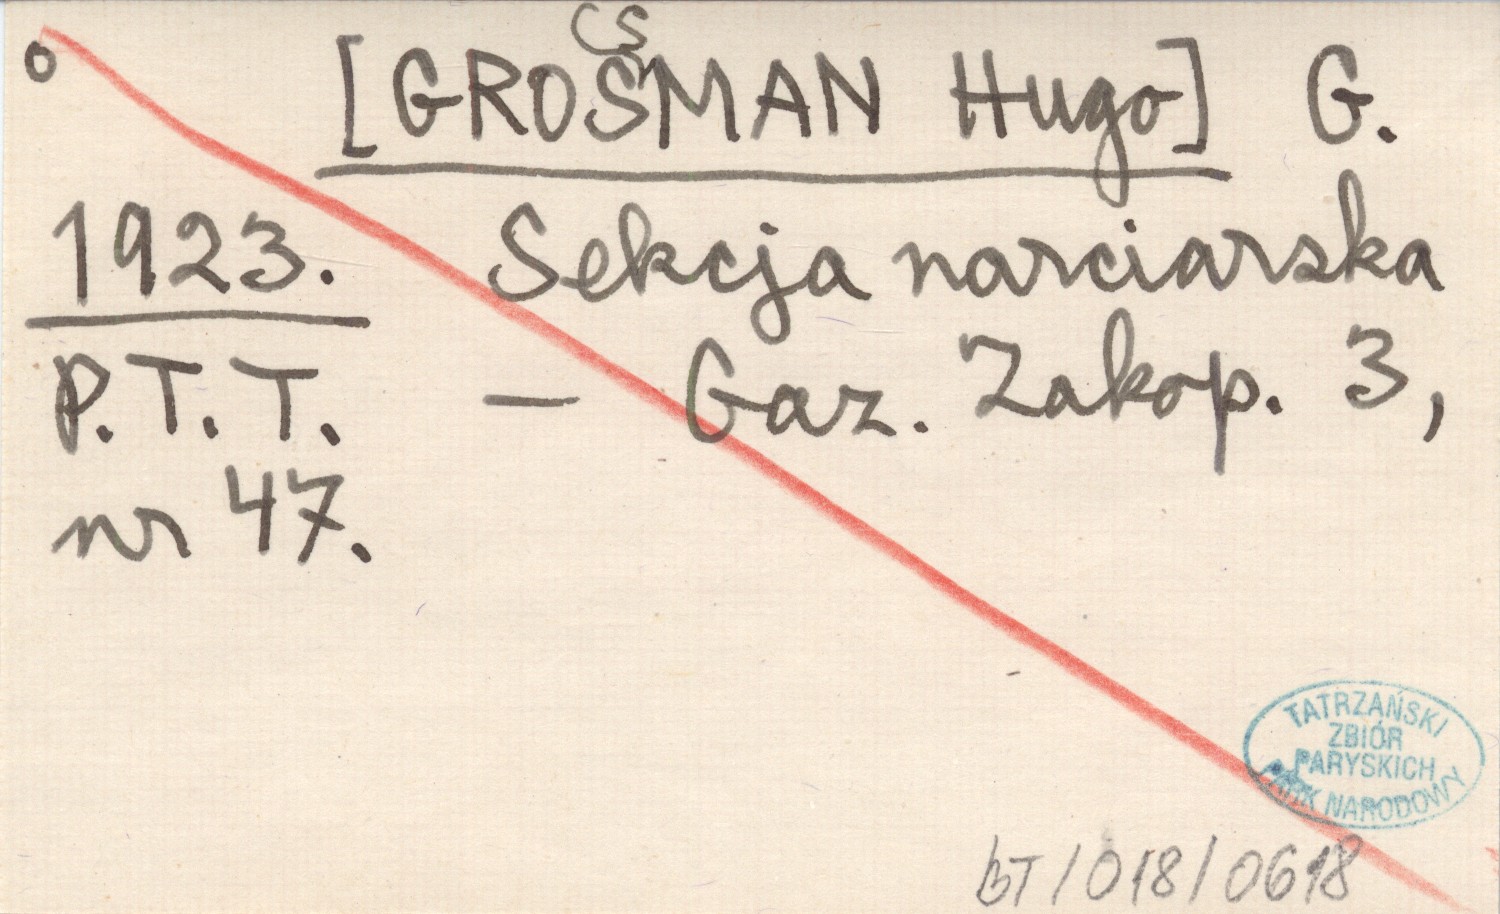 o
[GROSMAN Hugo] G.
cs
1923. Sekcja narciarska
P.T.T. — Gaz. Zakop. 3,
nr 47.
TATRZAŃSKI
ZBIÓR
PARYSKICH
PARK NARODOWY
BT/018/0618